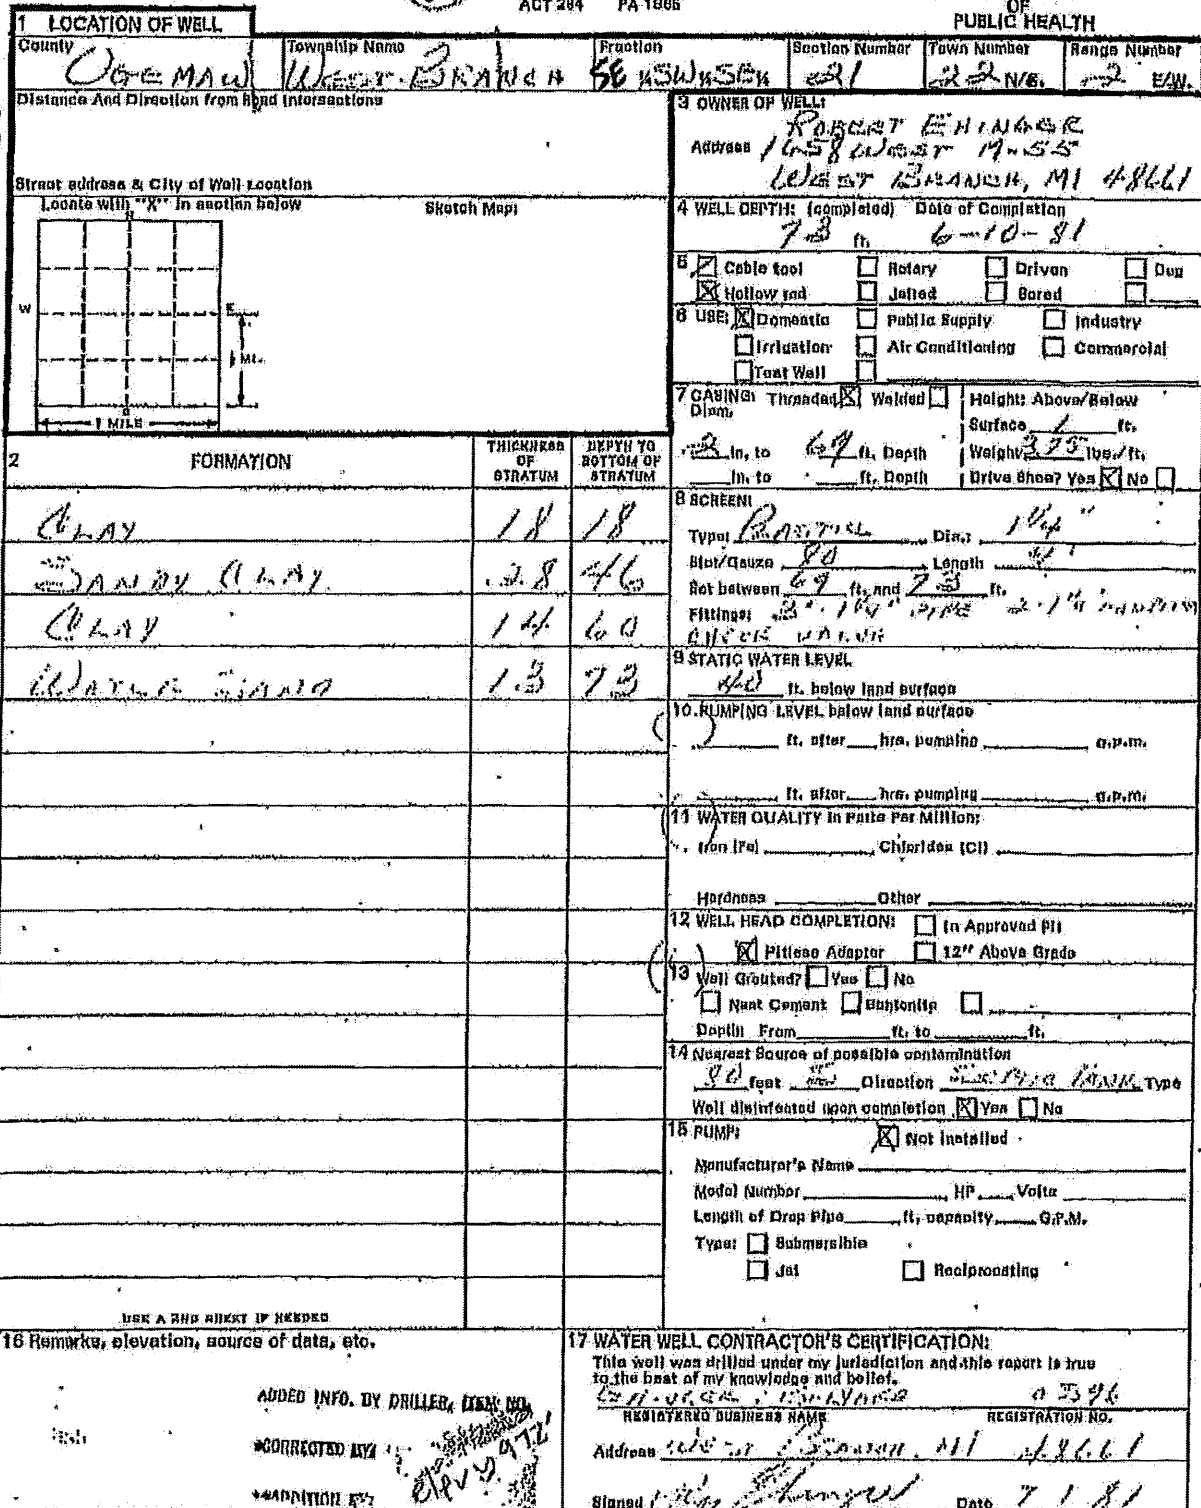 ACT 294 PA 1965
OF
PUBLIC HEALTH
1 LOCATION OF WELL
County
OGEMAW
Township Name
WEST BRANCH
Fraction
SE ¼ SW ¼ SE ¼
Section Number
21
Town Number
22 N/S.
Range Number
2 E/W.
Distance And Direction from Road Intersections
Street address & City of Well Location
Locate with "X" in section below
Sketch Map:
N
W
E
S
MI.
1 MILE
3 OWNER OF WELL:
ROBERT EHINGER
Address 1658 WEST M-55
WEST BRANCH, MI 48661
4 WELL DEPTH: (completed) Date of Completion
73 ft. 6-10-81
5 Cable tool Rotary Driven Dug
Hollow rod Jetted Bored
6 USE: Domestic Public Supply Industry
Irrigation Air Conditioning Commercial
Test Well
7 CASING: Threaded Welded
Diam.
2 in. to 69 ft. Depth
in. to ft. Depth
Height: Above/Below
Surface 1 ft.
Weight 3.75 lbs./ft.
Drive Shoe? Yes No
8 SCREEN:
Type: Dia.: 1¼"
Slot/Gauze 80 Length 4'
Set between 69 ft. and 73 ft.
Fittings:
CHECK VALVE
9 STATIC WATER LEVEL
40 ft. below land surface
10. PUMPING LEVEL below land surface
ft. after hrs. pumping g.p.m.
ft. after hrs. pumping g.p.m.
11 WATER QUALITY in Parts Per Million:
Iron (Fe) Chlorides (Cl)
Hardness Other
12 WELL HEAD COMPLETION: In Approved Pit
Pitless Adapter 12" Above Grade
13 Well Grouted? Yes No
Neat Cement Bentonite
Depth: From ft. to ft.
14 Nearest Source of possible contamination
80 feet Direction SEPTIC TANK Type
Well disinfected upon completion Yes No
15 PUMP: Not Installed
Manufacturer's Name
Model Number HP Volts
Length of Drop Pipe ft. capacity G.P.M.
Type: Submersible
Jet Reciprocating
2 FORMATION
THICKNESS OF STRATUM
DEPTH TO BOTTOM OF STRATUM
CLAY 18 18
SANDY CLAY 28 46
CLAY 14 60
WATER SAND 13 73
USE A 2ND SHEET IF NEEDED
16 Remarks, elevation, source of data, etc.
ADDED INFO. BY DRILLER, ITEM NO.
*CORRECTED BY:
**ADDITION BY:
elev 972
17 WATER WELL CONTRACTOR'S CERTIFICATION:
This well was drilled under my jurisdiction and this report is true
to the best of my knowledge and belief.
0396
REGISTERED BUSINESS NAME REGISTRATION NO.
Address WEST BRANCH, MI 48661
Signed Date 7 1 81